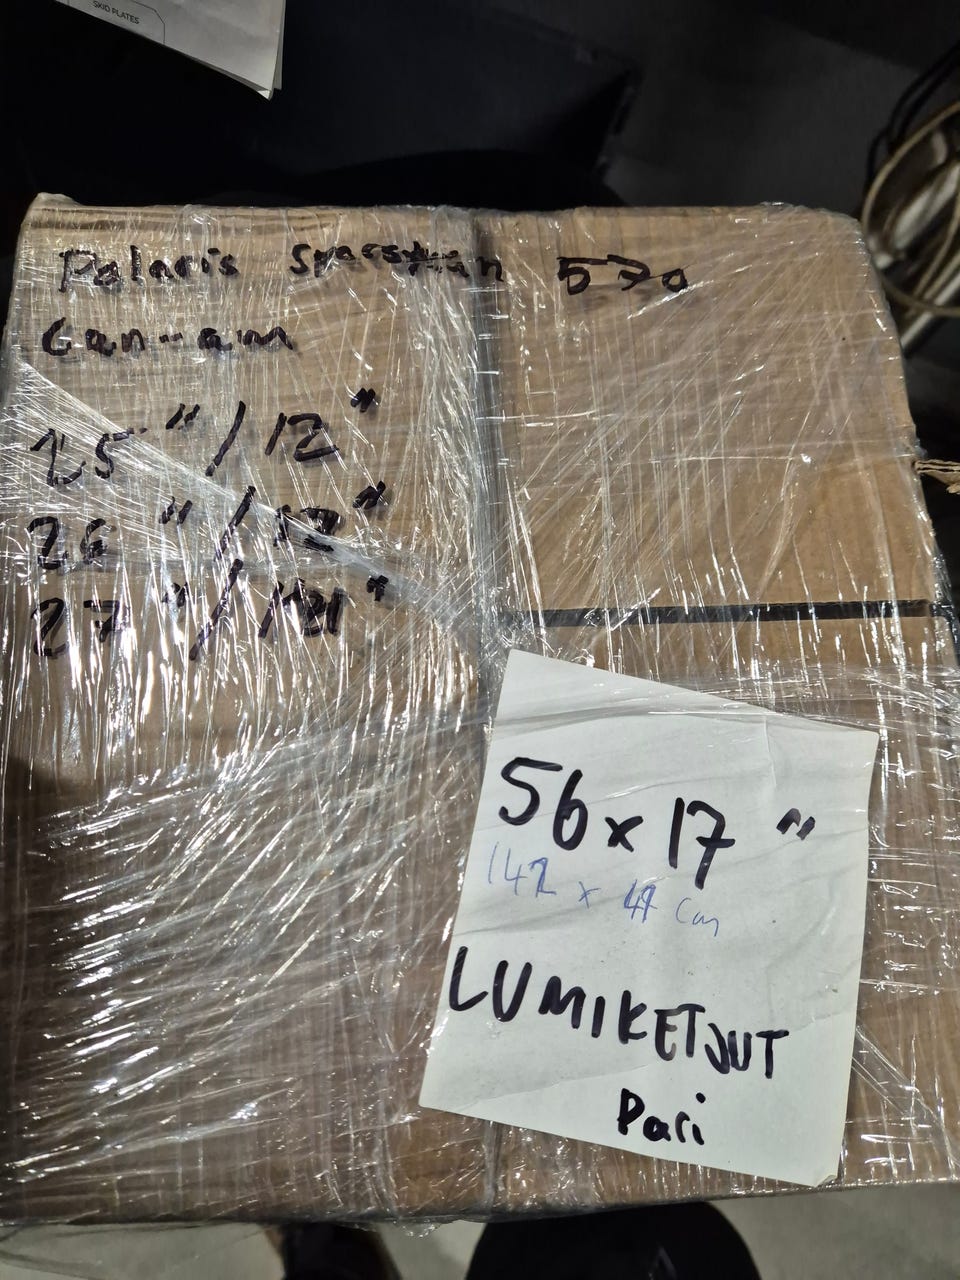 SKID PLATES
Polaris Sportsman 570
Can-am
25"/12"
26"/12"
27"/12"
56 x 17"
142 x 47 cm
LUMIKETJUT
Pari